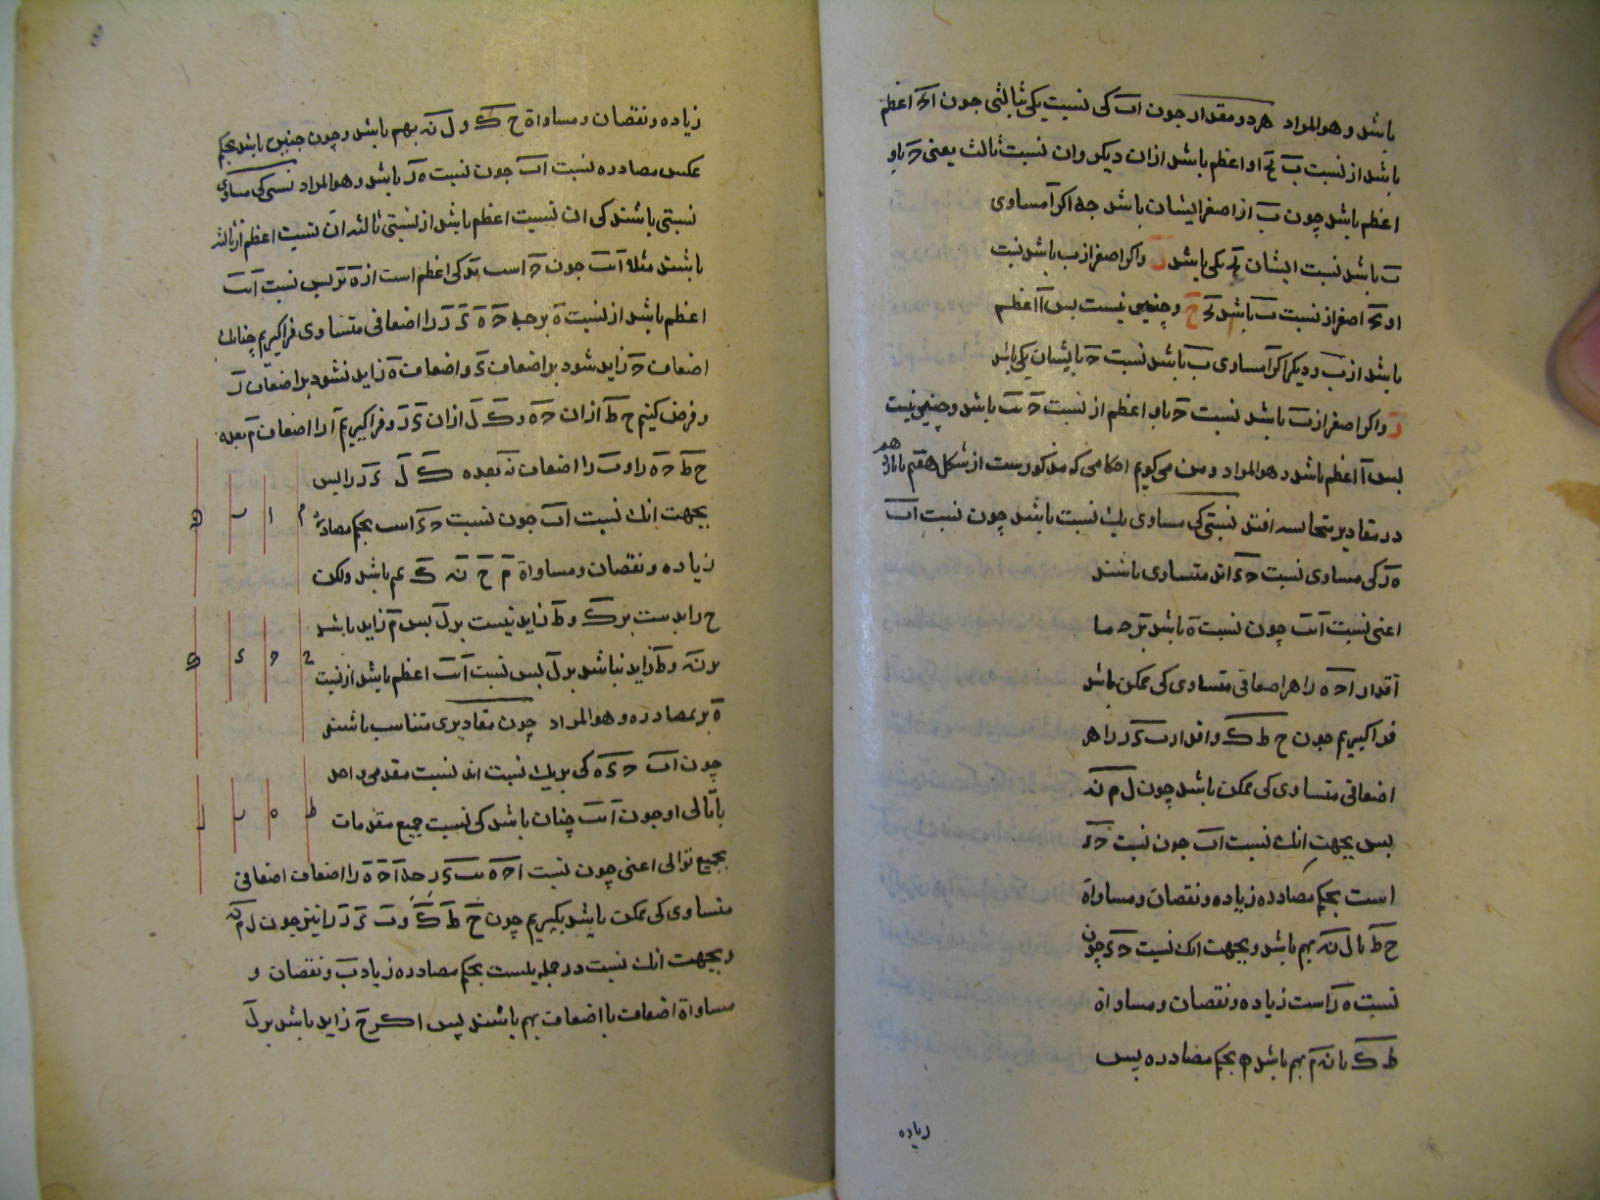 باشد و هو المراد هر دو مقدار چون اب کی نسبت یکی بثالثی چون ا ج اعظم
باشد از نسبت ب ج او اعظم باشد از ان دیکر وان نسبت ثالث یعنی ج باو
اعظم باشد چون ب از اصغر ایشان باشد چه اکر ا مساوی
ب باشد نسبت ایشان بج یکی باشد ز واکر اصغر از ب باشد نسبت
او بج اصغر از نسبت ب باشد بج ح وچنین نیست بس ا اعظم
باشد از ب ودیکر اکر ا مساوی ب باشد نسبت ج بایشان یکی باشد
ز واکر اصغر از ب باشد نسبت ج باو اعظم از نسبت ج ب باشد وچنین نیست
بس ا اعظم باشد و هو المراد ومن می کویم احکامی که مذکورست از شکل هفتم تا
در مقادیر متجانسه افتد نسبتی کی مساوی یک نسبت باشد چون نسبت اب
ه ز کی مساوی نسبت ج ء اند متساوی باشند
اعنی نسبت اب چون نسبت ه باشد بز چه ما
اقدار ا ج ه را هر اضعافی متساوی کی ممکن باشد
فراکیریم چون ح ط ک واقدار ب ء ز را هر
اضعافی متساوی کی ممکن باشد چون ل م ن
بس بجهت انک نسبت اب چون نسبت ج ء
است بحکم مصادره زیاده ونقصان ومساواة
ح ط با ل ن بهم باشد وبجهت انک نسبت ج ء چون
نسبت ه ز است زیاده ونقصان ومساواة
ط ک با ن م بهم باشد هم بحکم مصادره بس
زیاده
زیاده ونقصان ومساواة ح ک و ل ن بهم باشد وچون چنین باشد بحکم
عکس مصادره نسبت اب چون نسبت ه ز باشد و هو المراد نسبتی کی مساوی
نسبتی باشند کی ان نسبت اعظم باشد از نسبتی ثالثه ان نسبت اعظم از ثالثه
باشند مثلا اب چون ج است بء کی اعظم است از ه بز بس نسبت اب
اعظم باشد از نسبت ه بز چه ج ه ء ز را اضعافی متساوی فراکیریم چنانک
اضعاف ج زاید شود بر اضعاف ء واضعاف ه زاید نشود بر اضعاف ز
وفرض کنیم ح ط از ان ج ه و ک ل از ان ء ز وفراکیریم ا را اضعاف م بعده
ح ط ج ه را وب را اضعاف ن بعده ک ل ء ز را بس
بجهت انک نسبت اب چون نسبت ج ء است بحکم مصادره
زیاده ونقصان ومساواة م ح ن ک بهم باشد ولکن
ح زایدست بر ک و ط زاید نیست بر ل بس م زاید باشد
بر ن و ط زاید نباشد بر ل بس نسبت اب اعظم باشد از نسبت
ه بز بمصادره و هو المراد چون مقادیری متناسب باشند
چون اب ج ء ه کی بریک نسبت اند نسبت مقدمی واحد
با تالی او چون اب چنان باشد کی نسبت جمیع مقدمات
بجمیع توالی اعنی چون نسبت ا ج ه ب ء ز چه ا ج ه را اضعاف اضعافی
متساوی کی ممکن باشد بکیریم چون ح ط ک وب ء ز را نیز چون ل م ن
وبجهت انک نسبت در جمله یکیست بحکم مصادره زیادت ونقصان و
مساواة اضعاف با اضعاف بهم باشند پس اکر ح زاید باشد بر ل